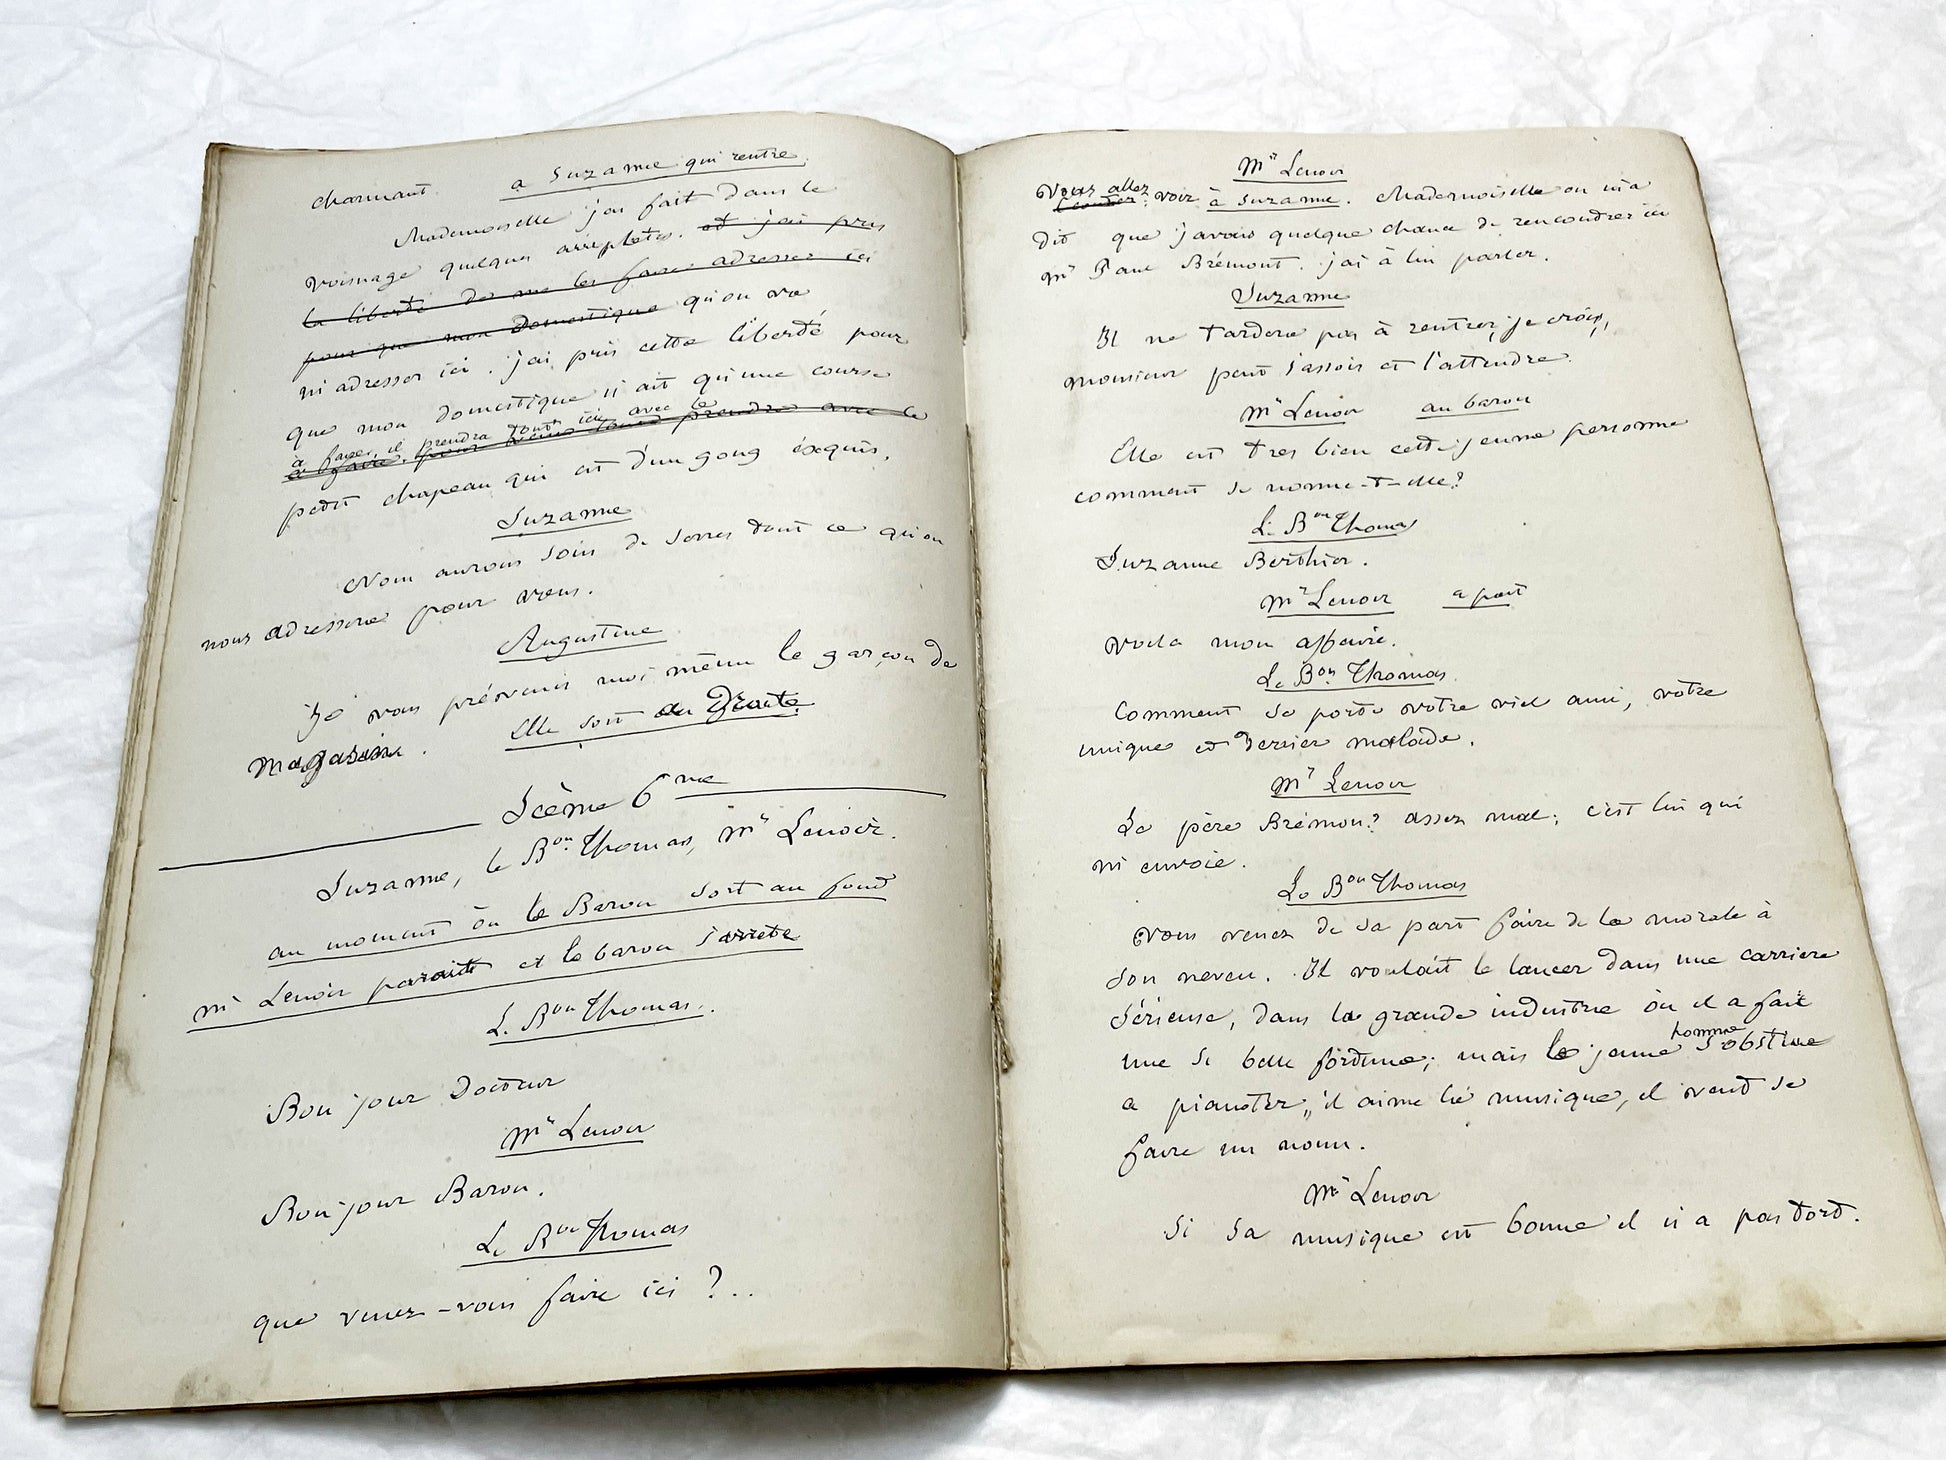 charmant. a Suzanne qui rentre.
Mademoiselle j'ai fait dans le
voisinage quelques amplettes. et j'ai pris
la liberté de me les faire adresser ici
pour que mon domestique qu'on va
m'adresser ici. j'ai pris cette liberté pour
que mon domestique n'ait qu'une course
à faire, il prendra tout ici avec le
à faire, pour prendre avec le
petit chapeau qui est d'un goug éxquis.
Suzanne
Nous aurons soin de serrer tout ce qu'on
nous adressera pour vous.
Augustine
Je vous préviens moi même le garçon de
Magasin. Elle sort au Droite.
Scène 6me
Suzanne, le Bon. Thomas, Mr Lenoir.
au moment où le Baron sort au fond
mr Lenoir parait et le baron s'arrète
Le Bon Thomas.
Bonjour Docteur
Mr Lenoir
Bonjour Baron.
Le Bon Thomas
que venez-vous faire ici ?..
Mr Lenoir
Vous allez
voir à Suzanne. Mademoiselle on m'a
dit que j'avais quelque chance de rencontrer ici
Mr Paul Brémont. j'ai à lui parler.
Suzanne
Il ne tardera pas à rentrer, je crois,
monsieur peut s'assoir et l'attendre.
Mr Lenoir au baron
Elle est tres bien cette jeune personne
comment se nomme-t-elle?
Le Bon Thomas
Suzanne Berthier.
Mr Lenoir a part
voila mon affaire.
Le Bon Thomas.
Comment se porte votre vieil ami, votre
unique et dernier malade.
Mr Lenoir
Le père Brémon? assez mal; c'est lui qui
m'envoie.
Le Bon Thomas
Vous venez de sa part faire de la morale à
son neveu. Il voulait le lancer dans une carriere
sérieuse, dans la grande industrie où il a fait
une si belle fortune; mais le jeune homme s'obstine
a pianoter, il aime la musique, il veut se
faire un nom.
Mr Lenoir
Si sa musique est bonne il n'a pas tort.